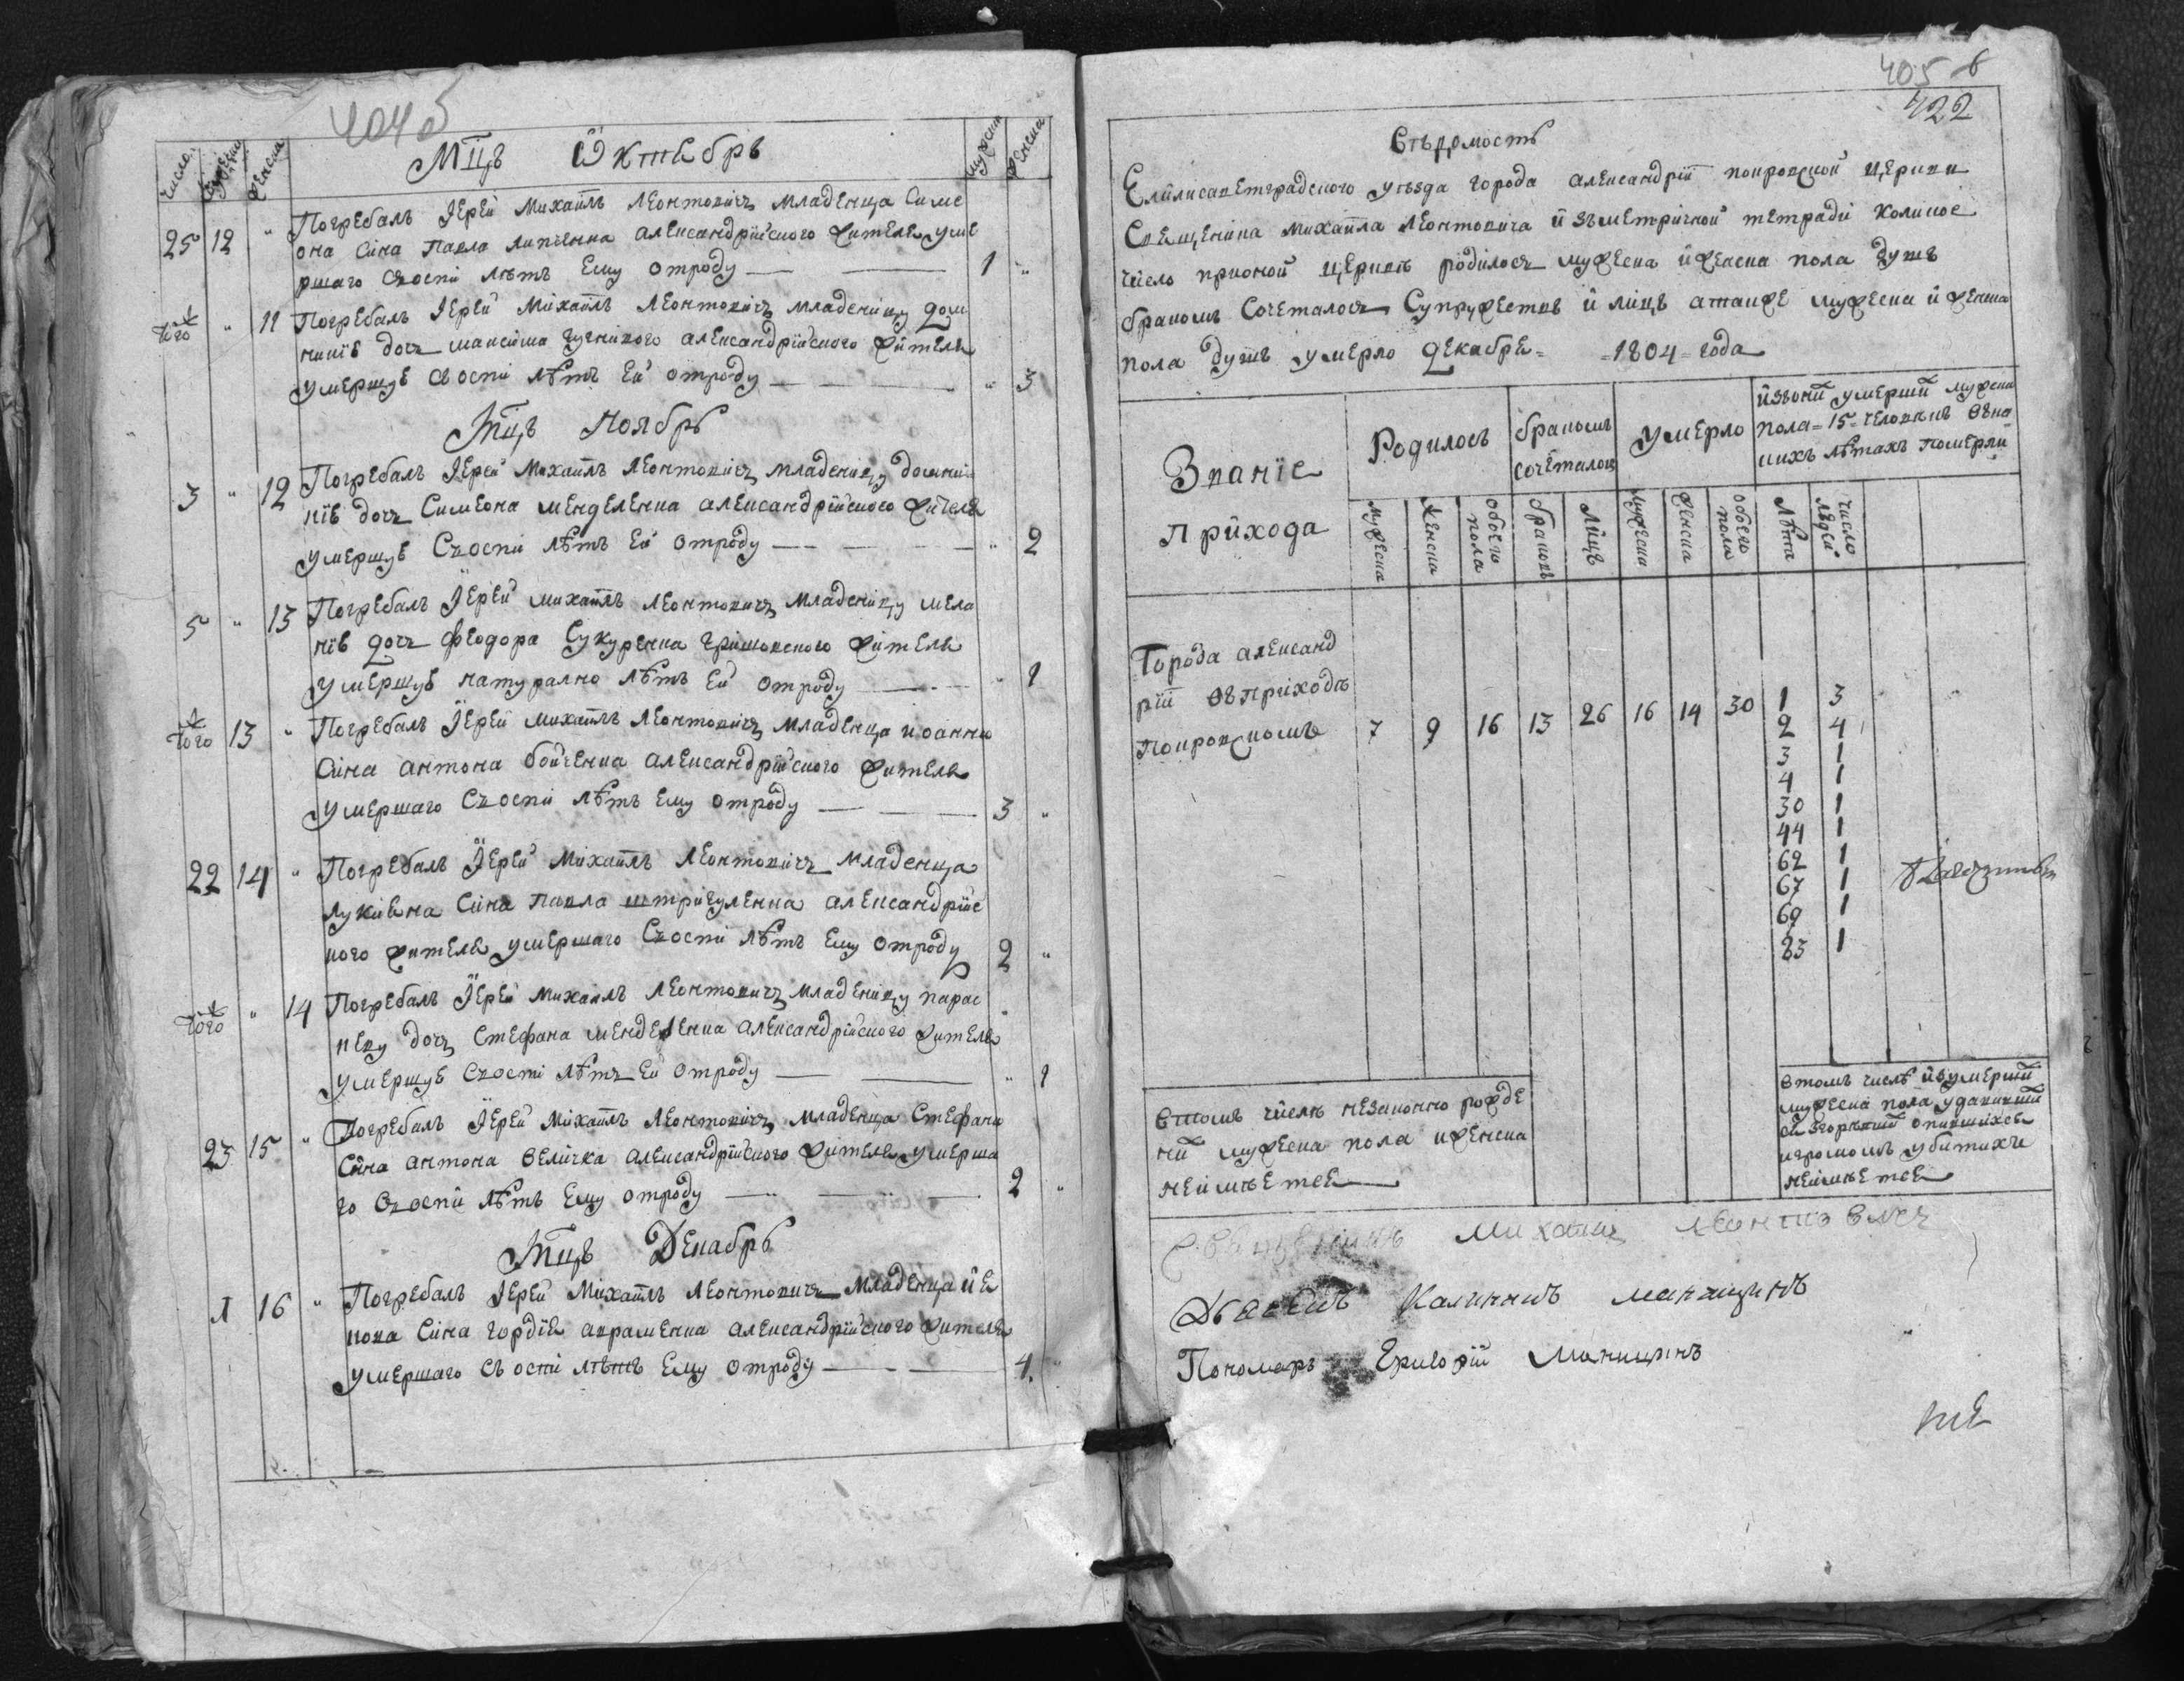 404 б
число
мужеска
женска
Мцъ Октябрь
мужеска
женска
25 12 " Погребалъ Іерей Михаилъ Леонтовичъ младенца Симе
она сина Павла Липченка александрийского жителя уме
ршаго съоспи лѣтъ Ему отроду 1 "
того " 11 Погребалъ Іерей Михаилъ Леонтовичъ младеницу дом
никію дочь максима александрійского жителя
умершую съоспи лѣтъ Ей отроду " 3
Мцъ Ноябрь
3 " 12 Погребалъ Іерей Михаилъ Леонтовичъ младеницу домни
кію дочь Симеона менделенка александрійского жителя
умершую Съоспи лѣтъ Ей отроду " 2
5 " 13 Погребалъ Іерей михаилъ леонтовичъ младеницу мела
нію дочь феодора Сукуренка жителя
умершую натурално лѣтъ Ей отроду " 1
того 13 " Погребалъ Іерей михаилъ Леонтовичъ младенца иоанна
Сина антона бойченка александрійского жителя
умершаго Съоспи лѣтъ Ему отроду 3 "
22 14 " Погребалъ Іерей Михаилъ Леонтовичъ младенца
лукіяна Сина Павла штригуленка александрійс
кого жителя умершаго Съоспи лѣтъ Ему отроду 2 "
того " 14 Погребалъ Іерей Михаилъ Леонтовичъ младеницу парас
кеву дочь Стефана менделенка александрійского жителя
умершую Съоспи лѣтъ Ей отроду " 1
23 15 " Погребалъ Іерей Михаилъ Леонтовичъ младенца Стефана
Сина антона величка александрійского жителя умерша
го Съоспи лѣтъ Ему отроду 2 "
Мцъ Декабрь
1 16 " Погребалъ Іерей Михаилъ Леонтовичъ младенца Іа
кова Сина гордія авраменка александрійского жителя
умершаго съ оспи лѣтъ Ему отроду 4 "
405 б
422
Вѣдомость
Елилисаветградского уѣзда города александріи покровской церкви
Священика михаила леонтовича изъметричной тетради коликое
число прионой церкви родилось мужеска иженска пола душъ
бракомъ сочеталось Супружествъ и лицъ атакже мужеска и женска
пола душъ умерло декабря = = 1804 = года
Званіе
прихода
Родилось
бракомъ
сочеталось
умерло
изъонихъ умерших мужеска
пола = 15 = человекъ вѣка
кихъ лѣтахъ померли
мужеска
женска
обоего
пола
браковъ
лицъ
мужеска
женска
обоего
пола
лѣта
число
людей
Города александ
ріи въприходѣ
покровскомъ 7 9 16 13 26 16 14 30
1 3
2 4
3 1
4 1
30 1
44 1
62 1
67 1
69 1
83 1
втомъ числѣ незаконно рожде
нихъ мужеска пола иженска
неимѣется
втомъ числѣ изумершихъ
мужеска пола удавивших
ся згорѣвшихъ опившихся
игромомъ убитихъ
неимѣется
Священникъ Михаилъ Леонтовичъ
Дьаконъ Калинникъ
Пономаръ Григорій